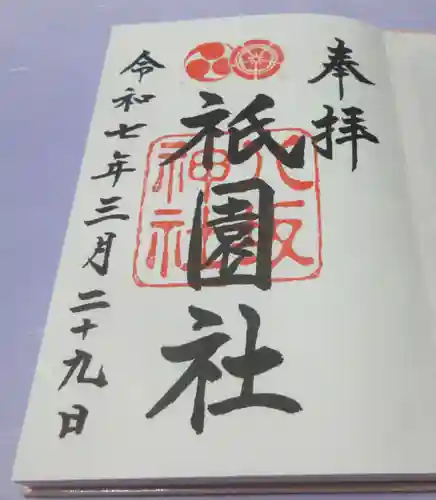 奉拝
八坂
神社
祇園社
令和七年三月二十九日